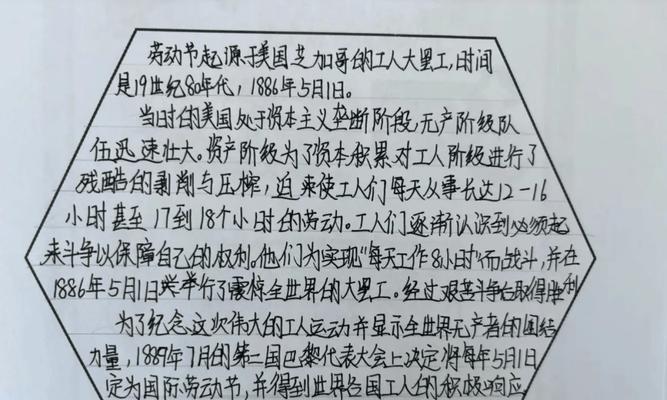 劳动节起源于美国芝加哥的工人大罢工,时间
是19世纪80年代,1886年5月1日。
当时的美国处于资本主义垄断阶段,无产阶级队
伍迅速壮大。资产阶级为了资本积累对工人阶级进行了
残酷的剥削与压榨,迫来使工人们每天从事长达12-16
小时甚至17到18个小时的劳动。工人们逐渐认识到必须起
来斗争以保障自己的权利。他们为实现"每天工作8小时"而战斗,并在
1886年5月1日举行了震惊全世界的大罢工。经过艰苦斗争后取得胜利
为了纪念这次伟大的工人运动并显示全世界无产者的团结
力量,1889年7月的第二国巴黎代表大会上决定将每年5月1日
定为国际劳动节,并得到世界各国工人的积极响应